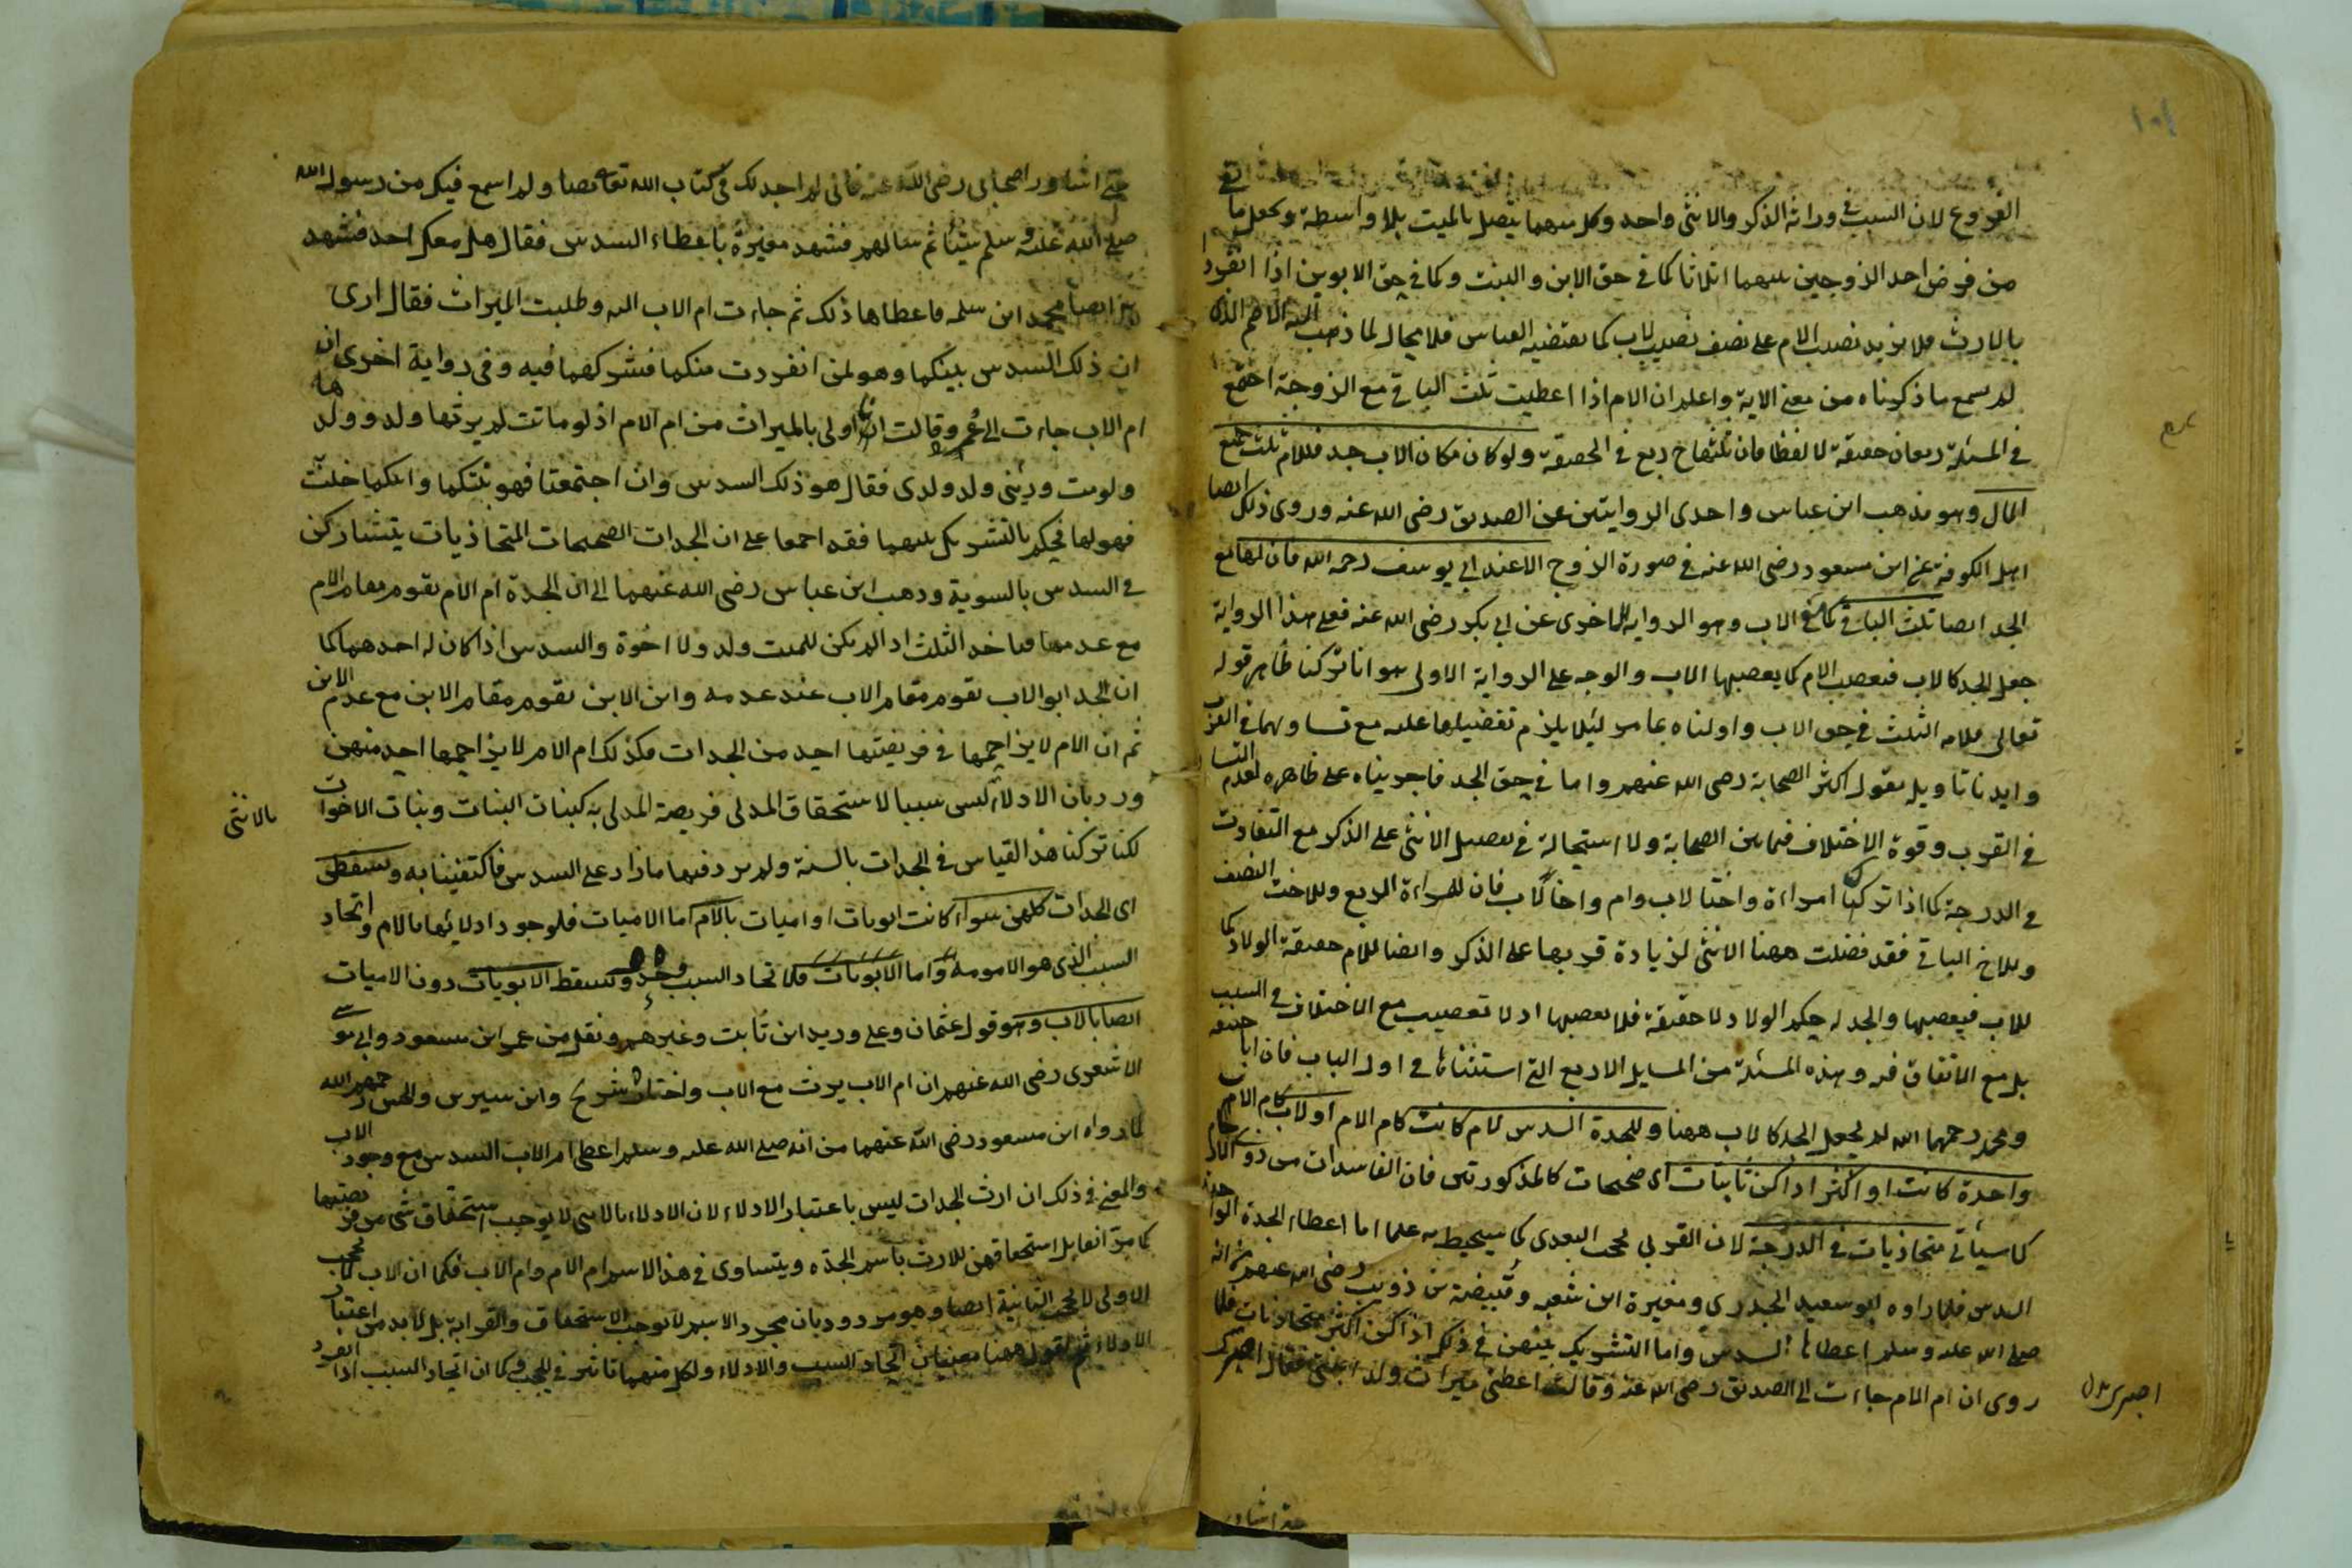 الفروع لان السبب في وراثة الذكر والانثى واحد وكل منهما يتصل بالميت بلا واسطة ويجعل ما بقي
من فرض احد الزوجين بينهما اثلاثا كما في حق الابن والبنت وكما في حق الابوين اذا انفردا
بالارث فلا يزيد نصيب الام على نصف نصيب الاب كما يقتضيه القياس فلا مجال لما ذهب اليه الاصم الذي
لم يسمع ما ذكرناه من معنى الاية واعلم ان الام اذا اعطيت ثلث الباقي مع الزوجة اجتمع
في المسئلة ربعان حقيقة لا لفظا فان ثلثها ربع في الحقيقة ولو كان مكان الاب جد فللام ثلث جميع
المال وهو مذهب ابن عباس واحدى الروايتين عن الصديق رضى الله عنه وروى ذلك ايضا
اهل الكوفة عن ابن مسعود رضى الله عنه في صورة الزوج الا عند ابي يوسف رحمه الله فان لها مع
الجد ايضا ثلث الباقي كما مع الاب وهو الرواية الاخرى عن ابي بكر رضى الله عنه فعلى هذا الرواية
جعل الجد كالاب فيعصب الام كما يعصبها الاب والوجه على الرواية الاولى هو انا تركنا ظاهر قوله
تعالى فلامه الثلث في حق الاب واولناه بما مر لئلا يلزم تفضيلها عليه مع تساويهما في القرب
وايدنا تاويله بقول اكثر الصحابة رضى الله عنهم واما في حق الجد فاجريناه على ظاهره لعدم التساوي
في القرب وقوة الاختلاف فيما بين الصحابة ولا استحالة في تفضيل الانثى على الذكر مع التفاوت
في الدرجة كما اذا تركت امراءة واختا لاب وام واخا لاب فان للمراءة الربع وللاخت النصف
وللاخ الباقي فقد فضلت ههنا الانثى لزيادة قربها على الذكر وايضا للام حقيقة الولاد كما
للاب فيعصبها والجد له حكم الولاد لا حقيقة فلا يعصبها اذ لا تعصيب مع الاختلاف في السبب
بل مع الاتفاق فيه وهذه المسئلة من المسايل الاربع التي استثناها في اول الباب فان ابا حنيفة
ومحمد رحمهما الله لم يجعل الجد كالاب ههنا وللجدة السدس لام كانت كام الام او لاب كام الاب
واحدة كانت او اكثر اذا كن ثابتات اى صحيحات كالمذكورتين فان الفاسدات من ذوي الارحام
كما سياتي متحاذيات في الدرجة لان القربى تحجب البعدى كما سيحيط به علما اما اعطاء الجدة الواحدة
السدس فلما رواه ابو سعيد الخدري ومغيرة ابن شعبه وقبيصة بن ذويب رضى الله عنهم من انه
صلى الله عليه وسلم اعطاها السدس واما التشريك بينهن في ذلك اذا كن اكثر متحاذيات فلما
روى ان ام الام جاءت الى الصديق رضى الله عنه وقالت اعطنى ميراث ولد ابنتى فقال اصبرى
حتى اشاور
حتى اشاور اصحابى رضى الله عنه فانى لم اجد لك فى كتاب الله تعالى نصا ولم اسمع فيك من رسول الله
صلى الله عليه وسلم شيئا ثم سالهم فشهد مغيرة باعطاء السدس فقال هل معك احد فشهد
به ايضا محمد ابن سلمه فاعطاها ذلك ثم جاءت ام الاب اليه وطلبت الميراث فقال ارى
ان ذلك السدس بينكما وهو لمن انفردت منكما فشركهما فيه وفى رواية اخرى ان
ام الاب جاءت الى عمر وقالت انا اولى بالميراث من ام الام اذ لو ماتت لم يرثها ولد ولدها
ولو مت ورثنى ولد ولدى فقال هو ذلك السدس وان اجتمعتا فهو بينكما وايتكما خلت
فهو لها فحكم بالتشريك بينهما فقد اجمعوا على ان الجدات الصحيحات المتحاذيات يتشاركن
فى السدس بالسوية وذهب ابن عباس رضى الله عنهما الى ان الجدة ام الام تقوم مقام الام
مع عدمها فياخذ الثلث اذا لم يكن للميت ولد ولا اخوة والسدس اذا كان له احدهما كما
ان الجد ابو الاب يقوم مقام الاب عند عدمه وابن الابن يقوم مقام الابن مع عدم الابن
ثم ان الام لا يزاحمها فى فريضتها احد من الجدات فكذلك ام الام لا يزاحمها احد منهن
ورد بان الادلاء ليس سببا لاستحقاق المدلى فريضة المدلى به كبنات البنات وبنات الاخوات
بالانثى
لكنا تركنا هذا القياس فى الجدات بالسنة ولم يرد فيها ما زاد على السدس فاكتفينا به وتسقطن
اى الجدات كلهن سواء كانت ابويات او اميات بالام اما الاميات فلوجود ادلائها بالام واتحاد
السبب الذى هو الامومة واما الابويات فلاتحاد السبب وحده وتسقط الابويات دون الاميات
ايضا بالاب وهو قول عثمان وعلى وزيد ابن ثابت وغيرهم ونقل من عمر ابن مسعود وابى موسى
الاشعرى رضى الله عنهم ان ام الاب يرث مع الاب واختاره شريح وابن سيرين والحسن رحمهم الله
لما رواه ابن مسعود رضى الله عنهما من انه صلى الله عليه وسلم اعطى ام الاب السدس مع وجود الاب
والمعنى فى ذلك ان ارث الجدات ليس باعتبار الادلاء لان الادلاء بالانثى لا يوجب استحقاق شئ من فريضتها
كما مر انفا بل استحقاقهن للارث باسم الجدة ويتساوى فى هذا الاسم ام الام وام الاب فكما ان الاب لا يحجب
الاولى لا يحجب الثانية ايضا وهو مردود بان مجرد الاسم لا يوجب الاستحقاق والقرابة بل لا بد من اعتبار
الادلاء ثم نقول ههنا معنيان اتحاد السبب والادلاء ولكل منهما تاثير فى الحجب وكما ان اتحاد السبب اذا انفرد